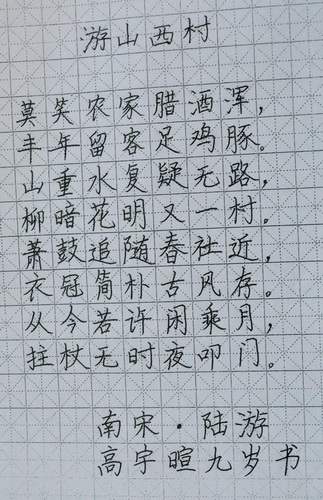 游山西村
莫笑农家腊酒浑,
丰年留客足鸡豚。
山重水复疑无路,
柳暗花明又一村。
萧鼓追随春社近,
衣冠简朴古风存。
从今若许闲乘月,
拄杖无时夜叩门。
南宋·陆游
高宇暄九岁书